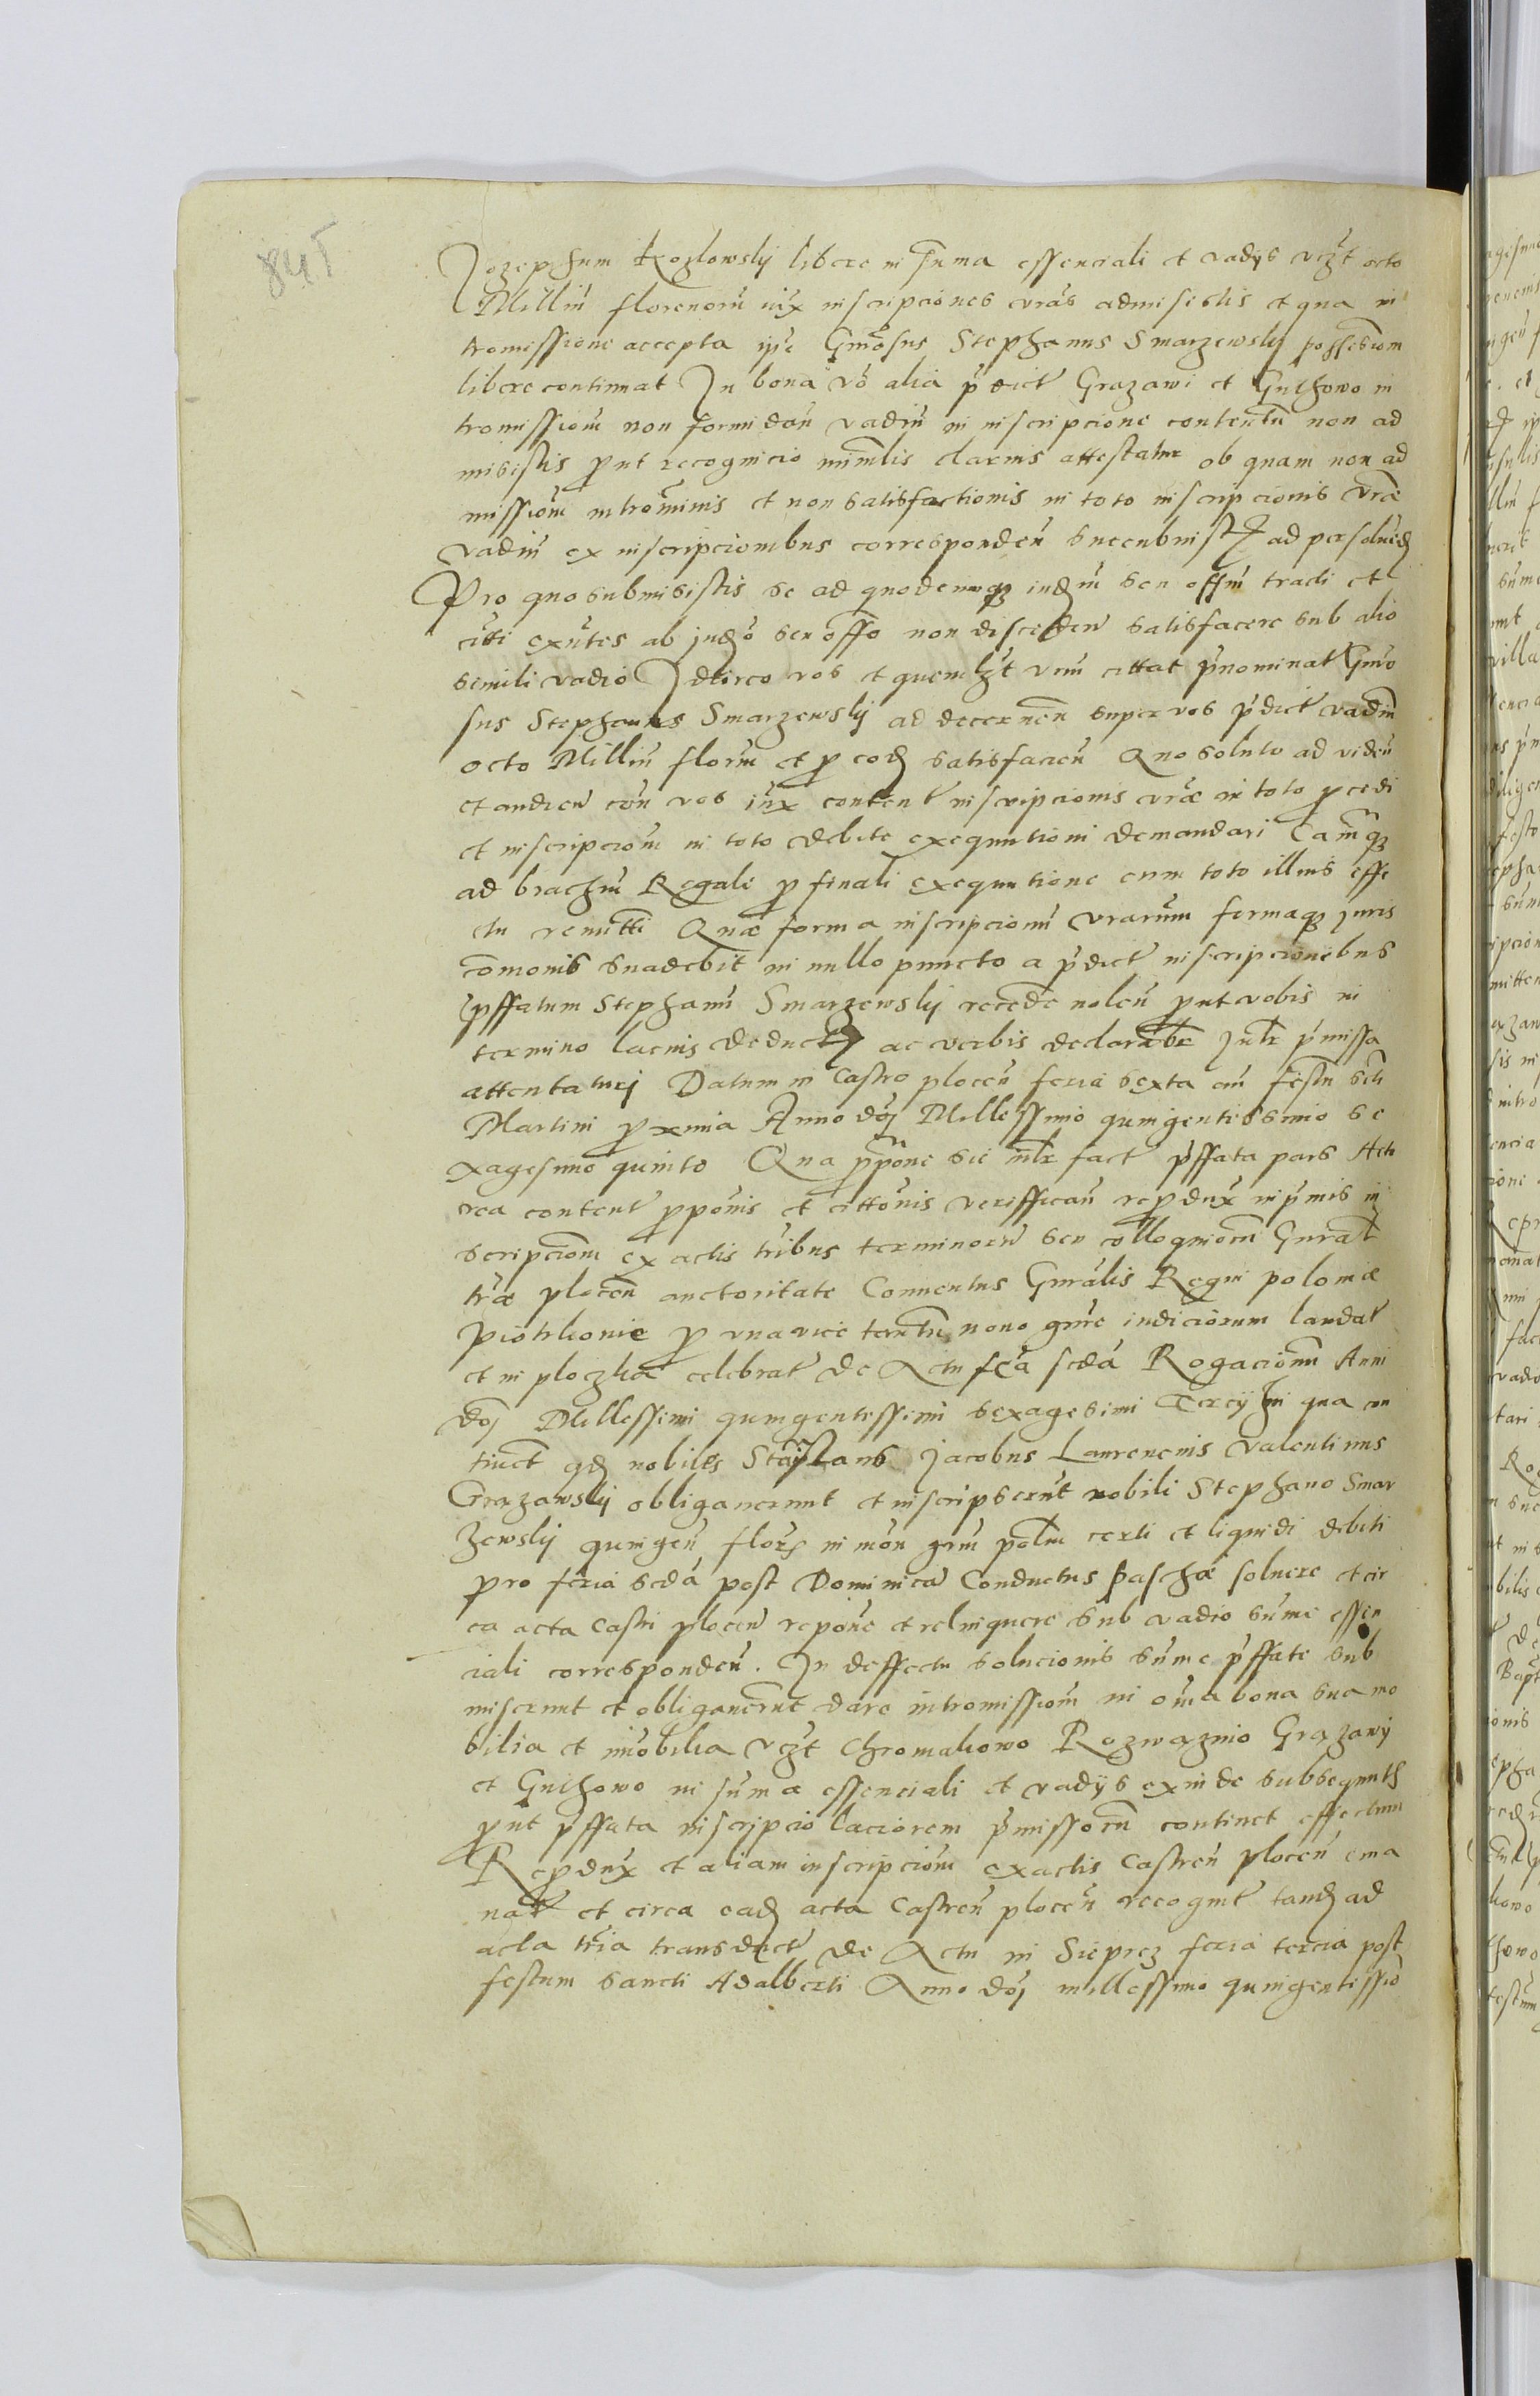 845
Jozephum Kozlowsky libere in suma essenciali et vadys vczt octo
Milliu florenoru iux inscripciones vras admisistis et qua in
tromissione accepta ipse Gnosus Stephanus Smarzewsky possessiom
libere continuat In bona vo alia pdict Grazawi et Gulhowo in
tromissiom non formidan vadiu in inscripcione contentu non ad
misistis put recognicio minlis clarius attestatur ob quam non ad
missiom intromnis et non satisfactionis in toto inscripcionis vrae
vadiu ex inscripcionibus corresponden succubuistis ad persoluend
Pro quo submisistis se ad quodcunqz iudm seu offm tradi et
citti exntes ab judo seu offo non disceden satisfacere sub alio
simili vadio Idcirco vos et quemlzt vrm cittat pnominat Gnro
sus Stephanus Smarzewsky ad decernen super vos pdict vadiu
octo Milliu floru et p eod satisfacien Quo soluto ad viden
et audien con vos iux content inscripcionis vrae in toto pcedi
et inscripciom in toto debite exequutioni demandari Eamqz
ad brachiu Regale p finali exequutione cum toto illius effe
ctu remitti Quae forma inscripcionu vrarum formaqz juris
comonis suadebit in nullo puncto a pdict inscripcionibus
pffatum Stephanu Smarzewsky recede nolen put vobis in
termino lacius deduct ac verbis declarabr Jnlr pmissa
attentaturj Datum in Castro plocen feria sexta an festu scti
Martini pxima Anno doj Millessimo quingentessimo se
xagesimo quinto Qua ppone sic inlr fact pffata pars Acto
rea content pponis et cittonis verifficau repdux inpmis in
scripciom ex actis tribus terminoru seu colloquiorum Gnral
trae plocen auctoritate Conuentus Gnralis Regni poloniae
piothkouie p vna vice tantu nouo gnre iudiciorum laudat
et in ploczka celebrat de Actu fea scda Rogacionu Anni
doj Millessimi quingentessimi sexagesimi Tercij In qua con
tinet qd nobiles Stanislaus Jacobus Laurencius Valentinus
Grazawsky obligauerunt et inscripserut nobili Stephano Smar
zewsky quingen flors in mon grm polm certi et liquidi debiti
pro feria scda post Dominica Conductus paschae soluere et cir
ca acta Castri plocen repone et relinquere sub vadio sume essen
ciali corresponden. In deffectu solucionis sume pffate sub
miserunt et obligauerut dare intromissiom in oma bona sua mo
bilia et imobilia vczt Chromakowo Rozwazino Grazawy
et Gulhowo in suma essenciali et vadys exinde subsequuts
put pffata inscripcio laciorem pmissoru continet effectum
Repdux et aliam inscripciom ex actis Castren plocen ema
nat et circa ead acta Castren plocen recognit tand ad
acta tria transduct de Actu in Sieprcz feria tercia post
festum sancti Adalberti Anno doj millessimo quingentessio